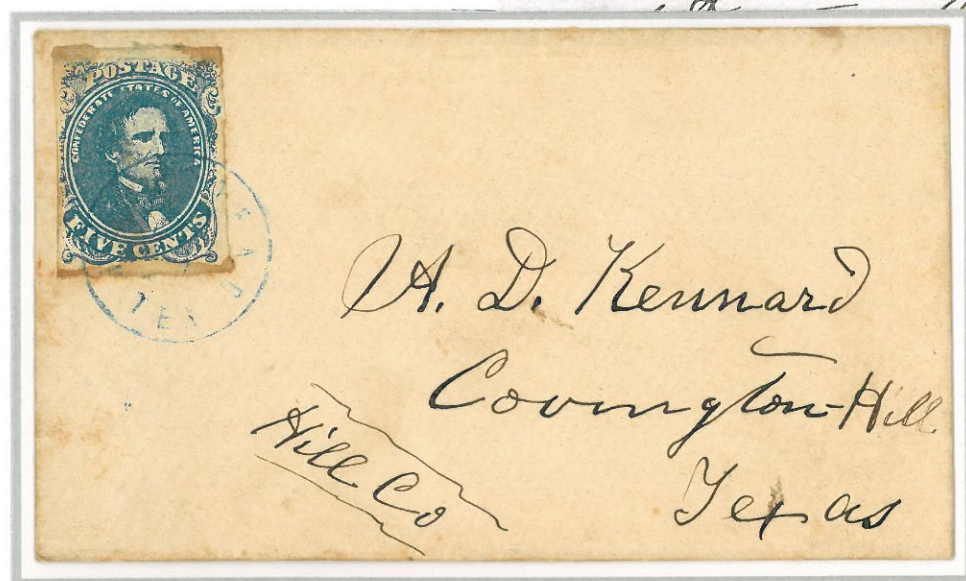 POSTAGE
CONFEDERATE STATES OF AMERICA
FIVE CENTS
TEX
A. D. Kennard
Covington-Hill
Hill Co
Texas